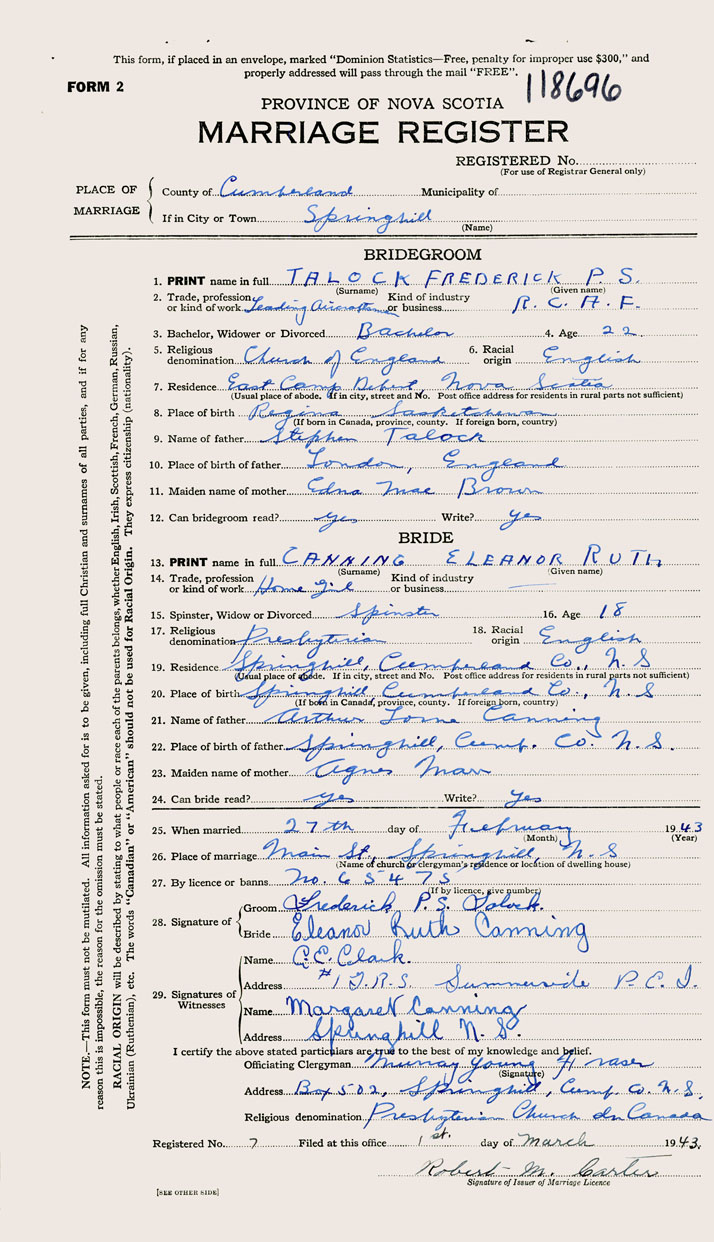 This form, if placed in an envelope, marked "Dominion Statistics—Free, penalty for improper use $300," and
properly addressed will pass through the mail "FREE".
FORM 2
118696
PROVINCE OF NOVA SCOTIA
MARRIAGE REGISTER
REGISTERED No.
(For use of Registrar General only)
PLACE OF MARRIAGE
County of Cumberland Municipality of
If in City or Town Springhill
(Name)
BRIDEGROOM
1. PRINT name in full TALOCK FREDERICK P. S.
(Surname) (Given name)
2. Trade, profession or kind of work Leading Aircraftsman Kind of industry or business R. C. A. F.
3. Bachelor, Widower or Divorced Bachelor 4. Age 22
5. Religious denomination Church of England 6. Racial origin English
7. Residence East Camp Debert, Nova Scotia
(Usual place of abode. If in city, street and No. Post office address for residents in rural parts not sufficient)
8. Place of birth Regina Saskatchewan
(If born in Canada, province, county. If foreign born, country)
9. Name of father Stephen Talock
10. Place of birth of father London, England
11. Maiden name of mother Edna Mae Brown
12. Can bridegroom read? yes Write? yes
BRIDE
13. PRINT name in full CANNING ELEANOR RUTH
(Surname) (Given name)
14. Trade, profession or kind of work Home girl Kind of industry or business
15. Spinster, Widow or Divorced Spinster 16. Age 18
17. Religious denomination Presbyterian 18. Racial origin English
19. Residence Springhill, Cumberland Co., N. S
(Usual place of abode. If in city, street and No. Post office address for residents in rural parts not sufficient)
20. Place of birth Springhill Cumberland Co., N. S
(If born in Canada, province, county. If foreign born, country)
21. Name of father Arthur Lorne Canning
22. Place of birth of father Springhill, Cump. Co. N. S.
23. Maiden name of mother Agnes
24. Can bride read? yes Write? Yes
25. When married 27th day of February 1943
(Month) (Year)
26. Place of marriage Main St., Springhill, N. S
(Name of church or clergyman's residence or location of dwelling house)
27. By licence or banns No. 65475
(If by licence, give number)
28. Signature of
Groom Frederick P. S. Talock.
Bride Eleanor Ruth Canning
29. Signatures of Witnesses
Name C.E. Clark.
Address #1 Summerside P. E. I.
Name Margaret Canning
Address Springhill N. S.
I certify the above stated particulars are true to the best of my knowledge and belief.
Officiating Clergyman Murray Young Fraser
(Signature)
Address Box 502, Springhill, Cump. Co. N. S.
Religious denomination Presbyterian Church In Canada
Registered No. 7 Filed at this office 1st. day of March 1943.
Robert M. Carter
Signature of Issuer of Marriage Licence
[SEE OTHER SIDE]
NOTE.—This form must not be mutilated. All information asked for is to be given, including full Christian and surnames of all parties, and if for any
reason this is impossible, the reason for the omission must be stated.
RACIAL ORIGIN will be described by stating to what people or race each of the parents belongs, whether English, Irish, Scottish, French, German, Russian,
Ukrainian (Ruthenian), etc. The words "Canadian" or "American" should not be used for Racial Origin. They express citizenship (nationality).